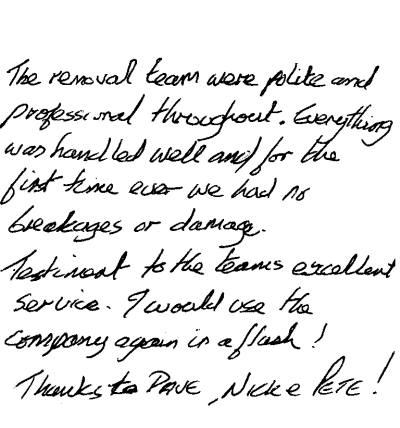 The removal team were polite and
professional throughout. Everything
was handled well and for the
first time ever we had no
breakages or damage.
Testiment to the teams excellent
service. I would use the
company again in a flash!
Thanks to DAVE, NICK & PETE!